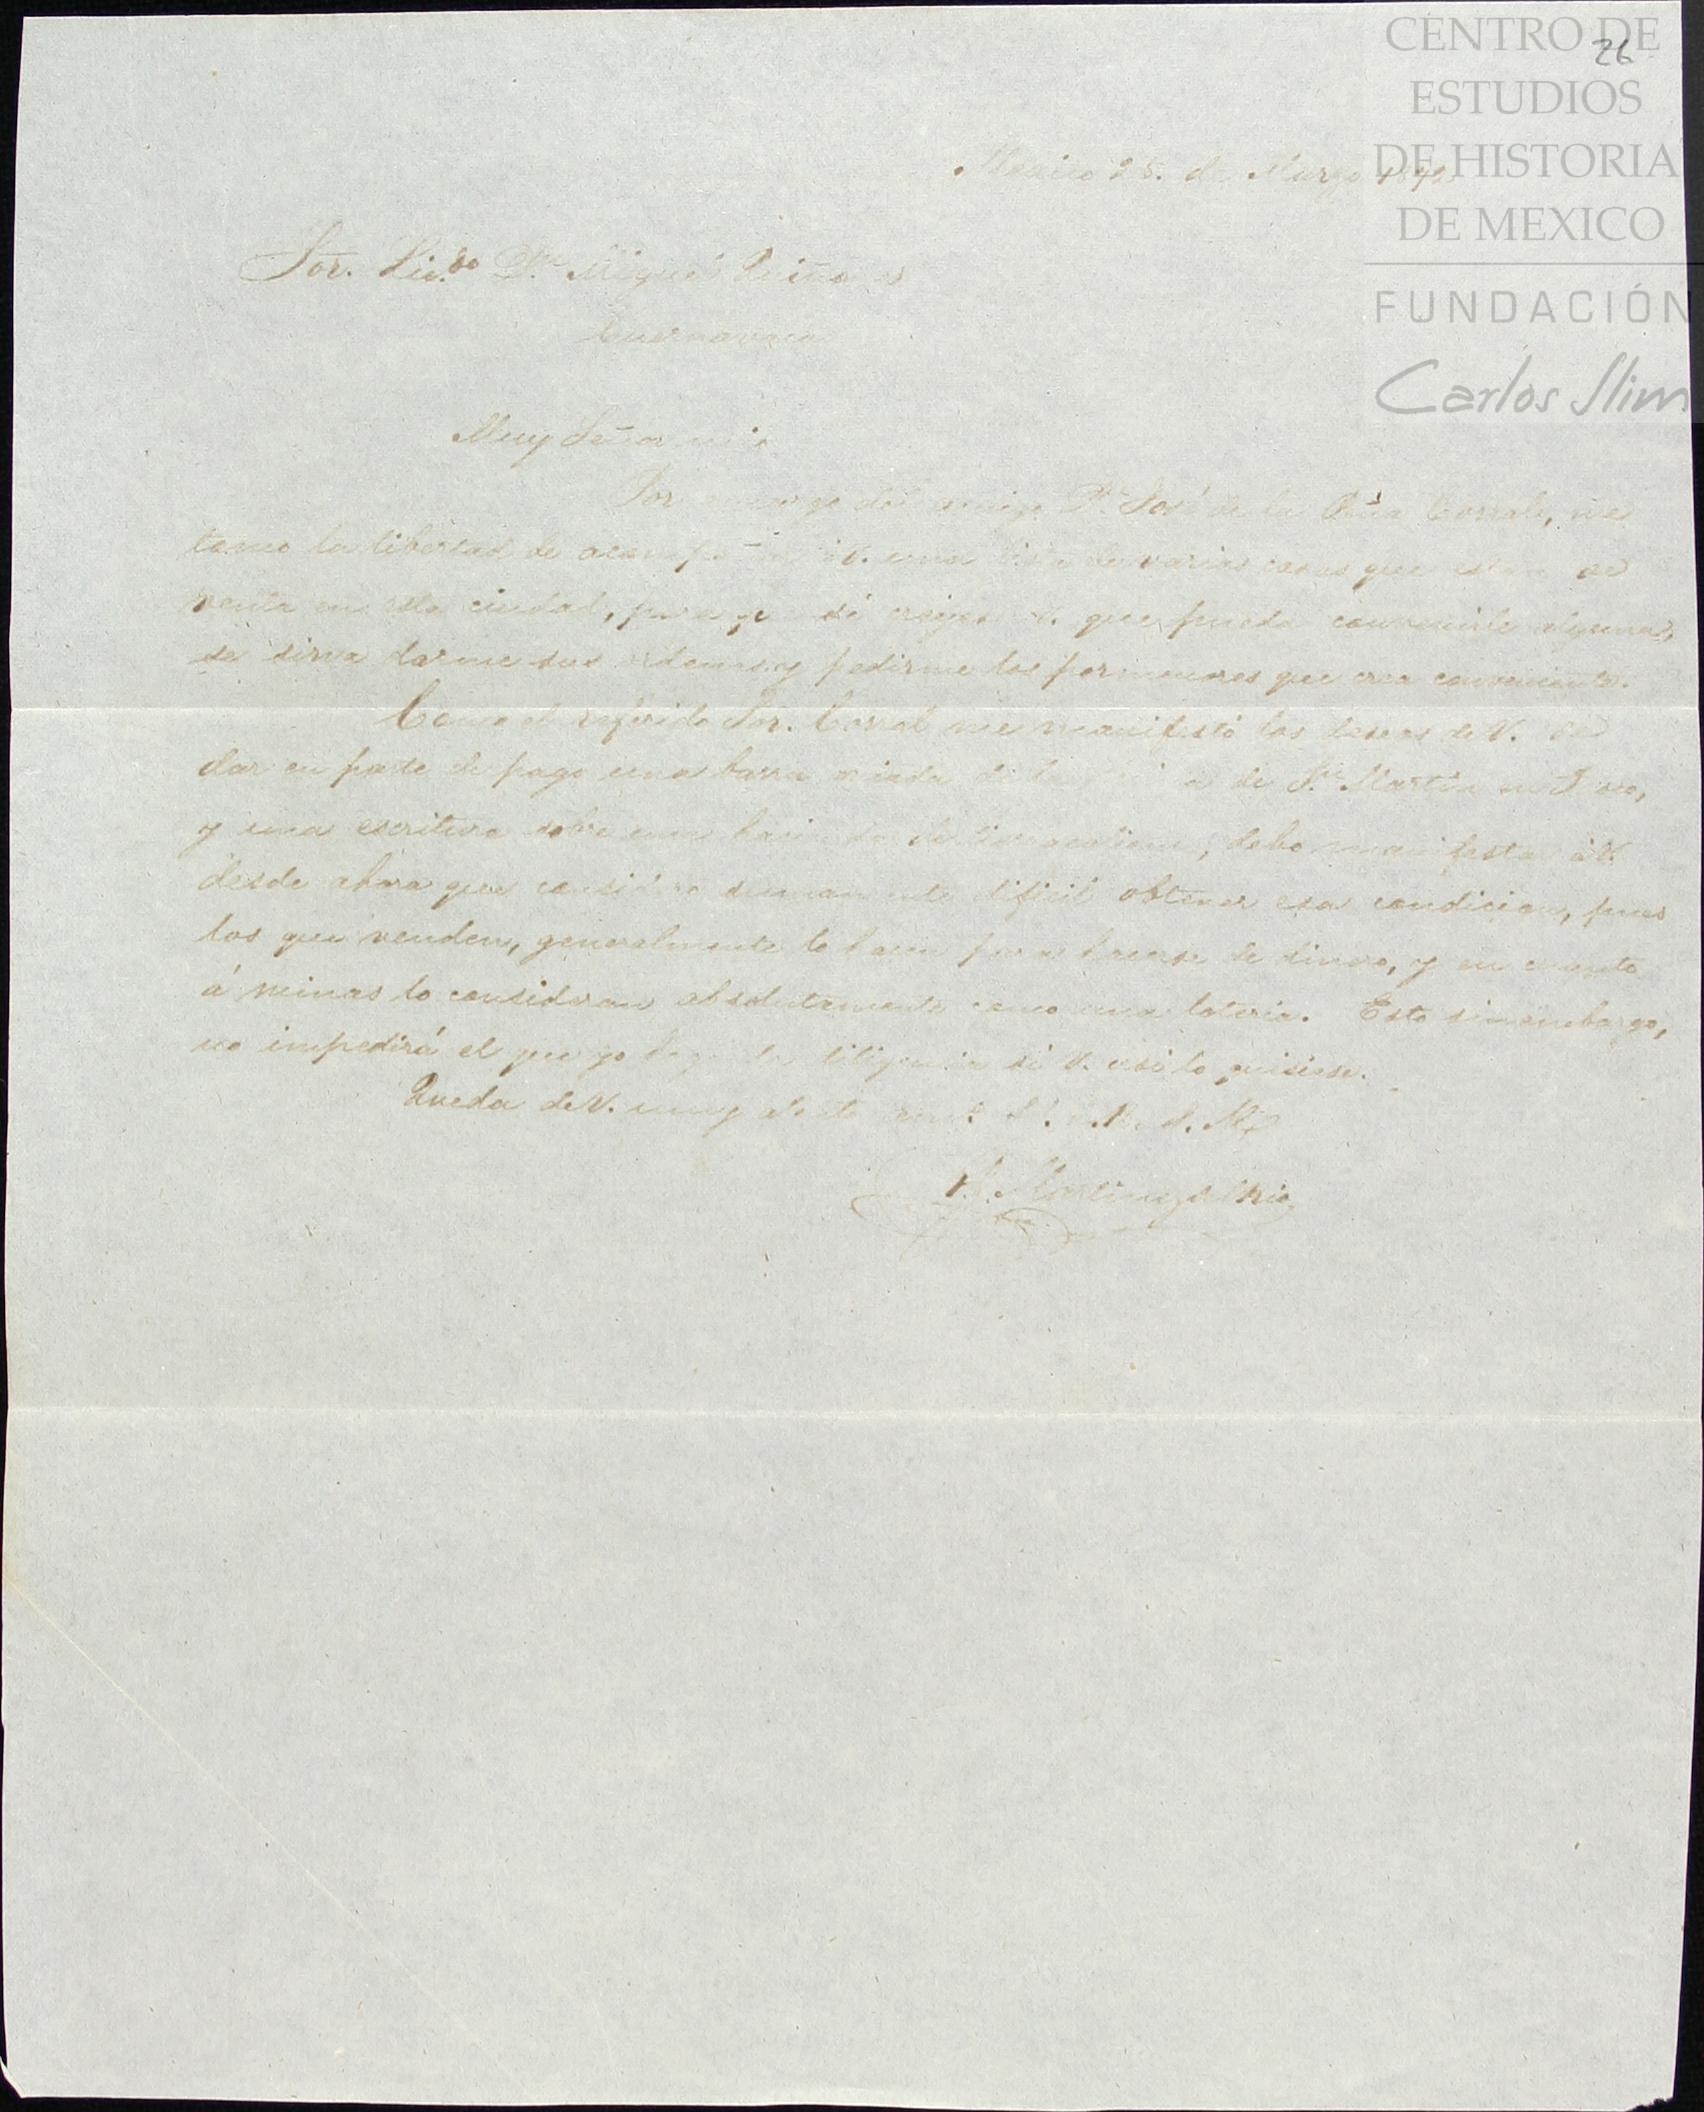 CENTRO DE
ESTUDIOS
DE HISTORIA
DE MEXICO
FUNDACIÓN
Carlos Slim
26
Mexico 25. de Marzo 1842
Sor. Lic.do Dn. Miguel Quiñones
Cuernavaca
Muy Señor mio
Por encargo del amigo Dn. José de la Peña Corral, me
tomo la libertad de acompañar à V. una lista de varias casas que estan de
venta en esta ciudad, para qe si creyese V. que pueda convenirle alguna,
se sirva darme sus ordenes y pedirme los pormenores que crea conveniente.
Como el referido Sor. Corral me manifestó los deseos de V. de
dar en parte de pago una barra de la de Sn. Martin
y una escritura sobre una hacienda de ; debo manifestar à V.
desde ahora que considero sumamente dificil obtener esa condicion, pues
los que venden, generalmente lo hacen para hacerse de dinero, y en cuanto
á minas lo consideran absolutamente como una loteria. Esto sin embargo,
no impedirá el que yo haga la diligencia si V. asi lo quisiese.
Queda de V. muy atento
Martinez del Rio